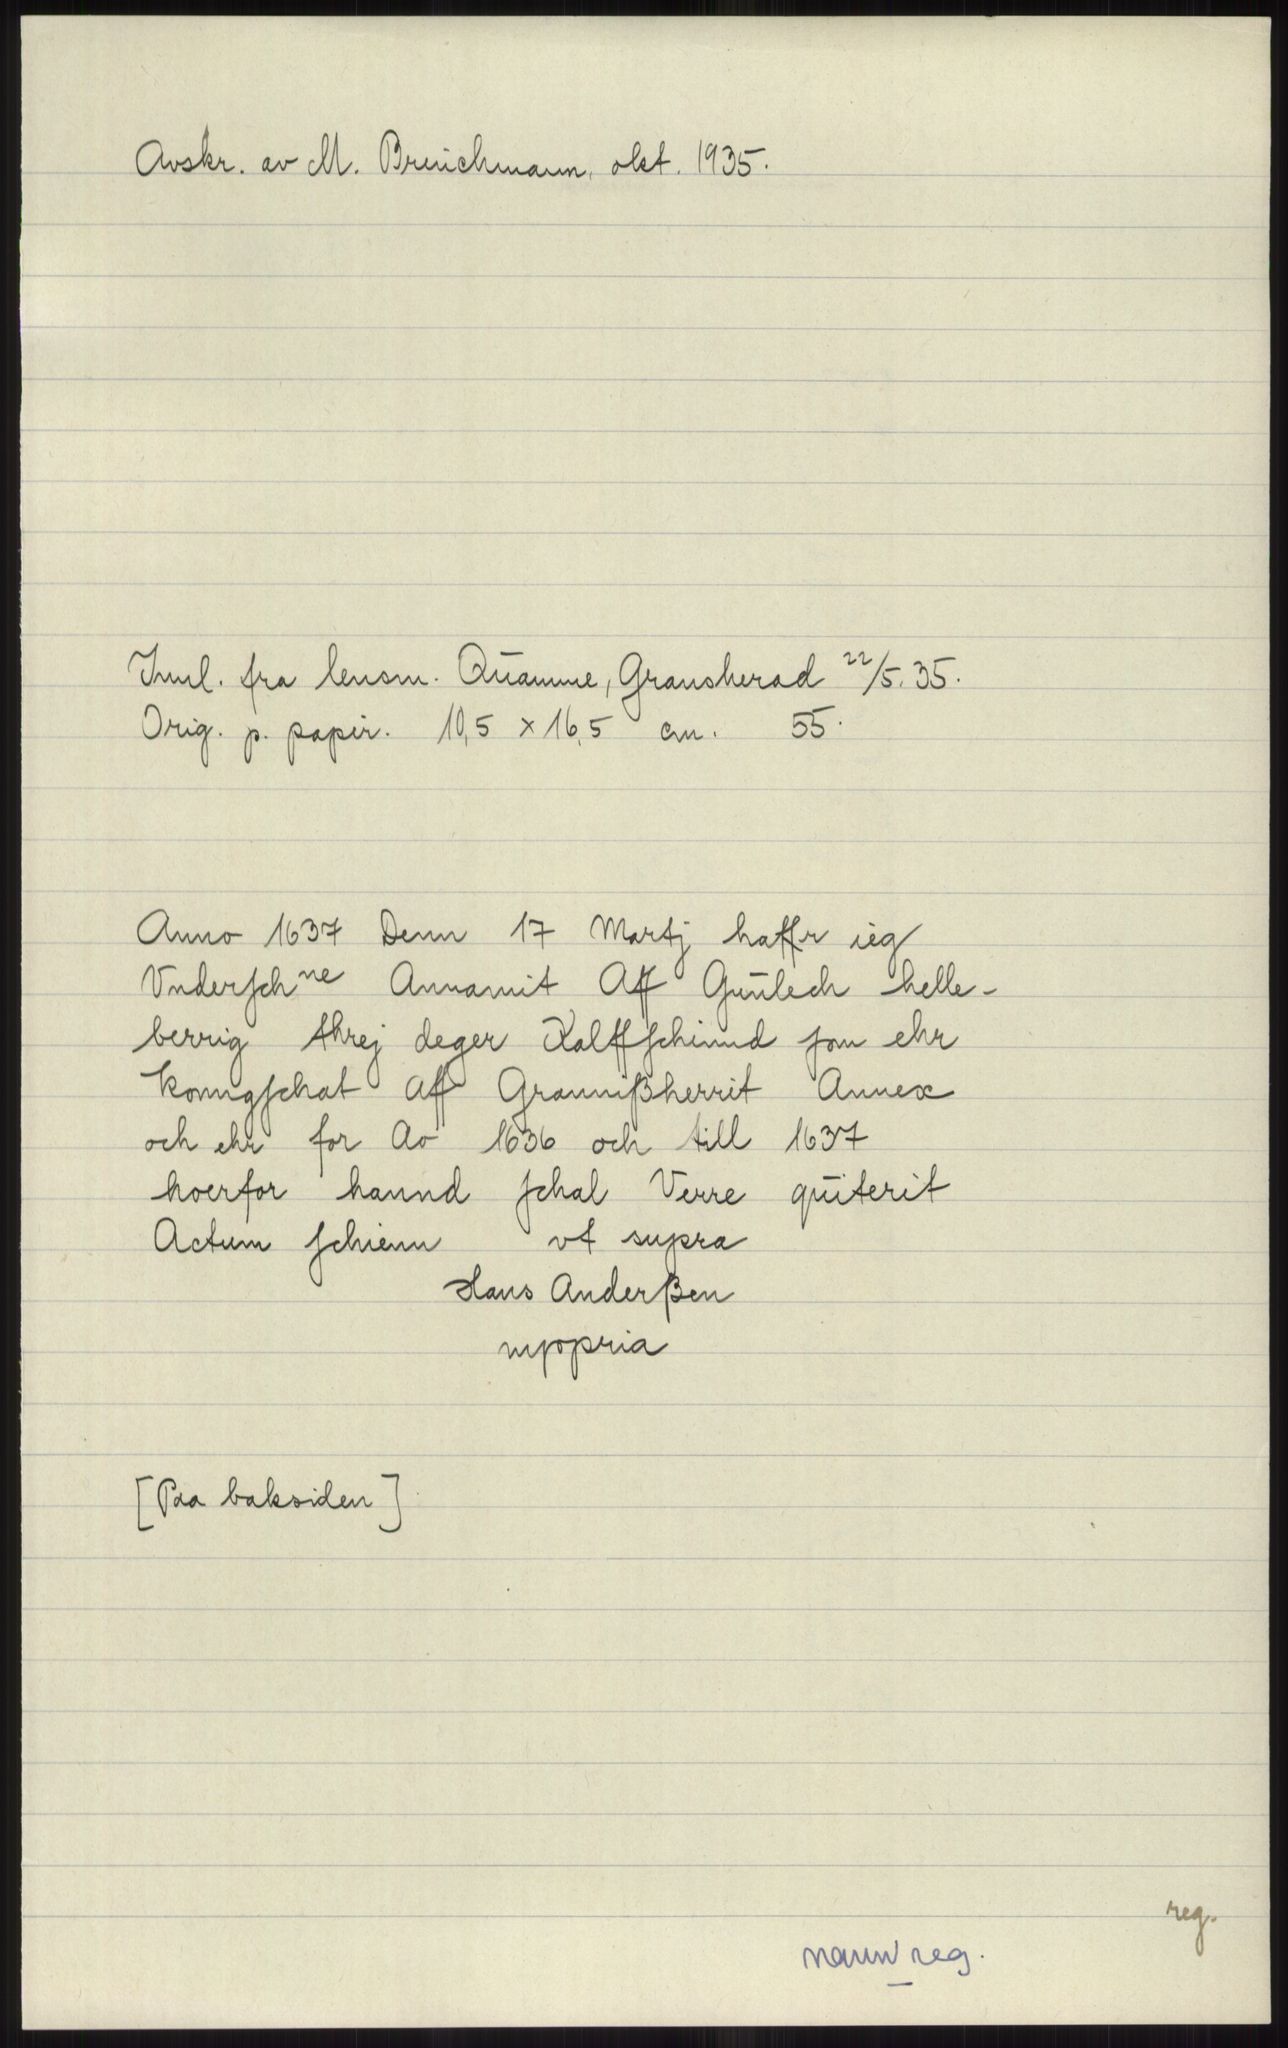 Avskr. av M. Brinchmann, okt. 1935.
Innl. fra lensm. Qŭamme, Gransherad 22/5. 35.
Orig. p. papir. 10,5 x 16,5 cm. 55.
Anno 1637 Denn 17 Martj haffr ieg
Vnderschne Annamit Aff Gŭnlech helle-
berrig threj deger Kalffschinnd som ehr
konngschat aff Grannißherrit Annex
och ehr for Ao 1636 och till 1637
hoerfor hannd schal Verre qŭiterit
Actum schienn vt supra
Hans Anderßen
mpopria
[Paa baksiden]
reg.
navn reg.